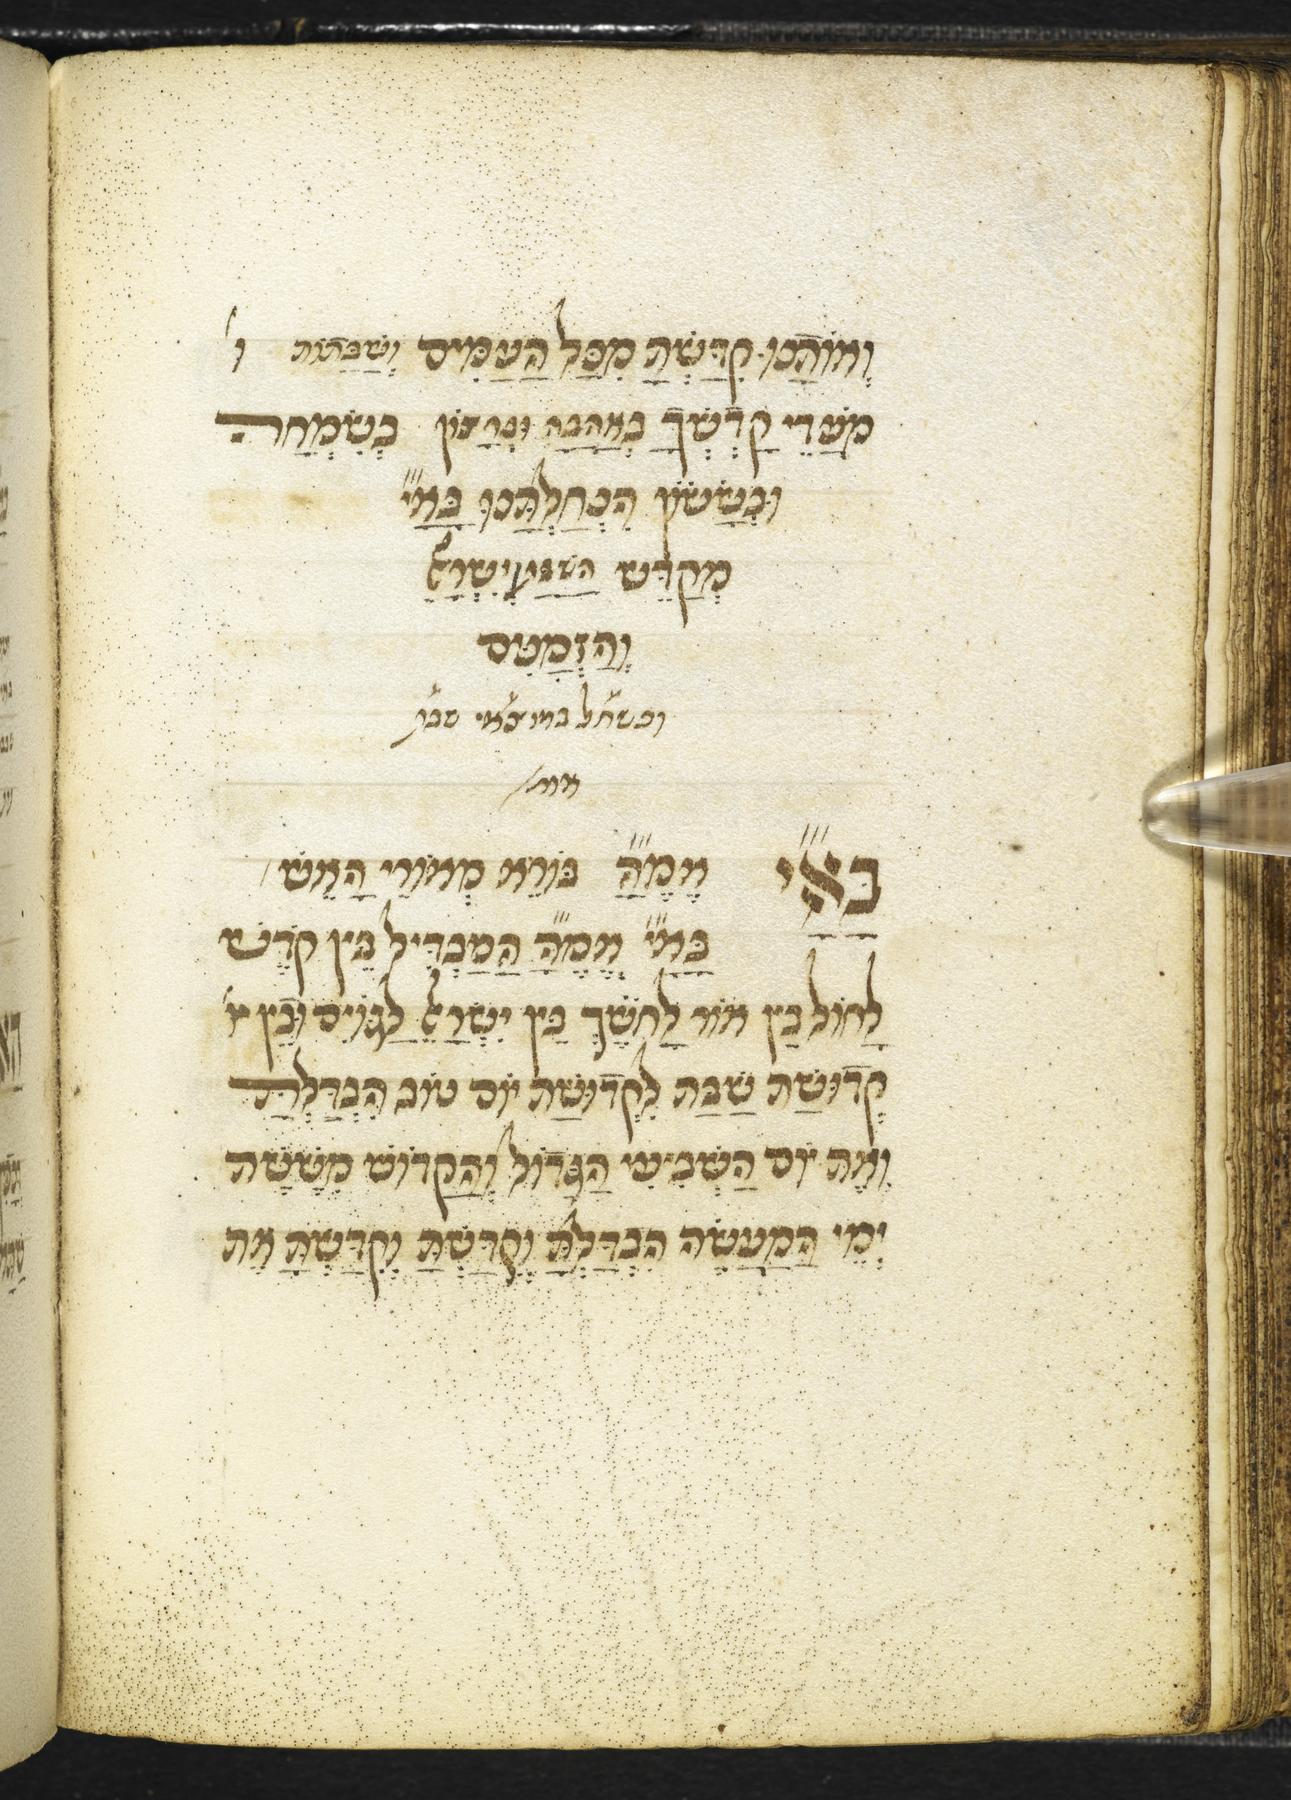 וְאוֹתָנוּ קִדַּשְׁתָּ מִכָּל הָעַמִּים וְשַׁבָּתוֹת ו'
מוֹעֲדֵי קָדְשְׁךָ בְּאַהֲבָה וּבְרָצוֹן בְּשִׂמְחָה
וּבְשָׂשׂוֹן הִנְחַלְתָּנוּ בָּא"יְ
מְקַדֵּשׁ הַשַּׁבָּת וְיִשְׂרָאֵל
וְהַזְּמַנִּים
וכשחל במוצאי שבת
אומ'
בָּאַ"י אֱמֶ"הָ בּוֹרֵא מְאוֹרֵי הָאֵשׁ
בָּאַ"י אֱמֶ"הָ הַמַּבְדִּיל בֵּין קֹדֶשׁ
לְחוֹל בֵּין אוֹר לְחֹשֶׁךְ בֵּין יִשְׂרָאֵל לַגּוֹיִם וּבֵין י'
קְדוּשַּׁת שַׁבָּת לִקְדוּשַּׁת יוֹם טוֹב הִבְדַּלְתָּ
וְאֶת יוֹם הַשְּׁבִיעִי הַגָּדוֹל וְהַקָּדוֹשׁ מִשֵּׁשֶׁת
יְמֵי הַמַּעֲשֶׂה הִבְדַּלְתָּ וְקִדַּשְׁתָּ וְקִדַּשְׁתָּ אֶת